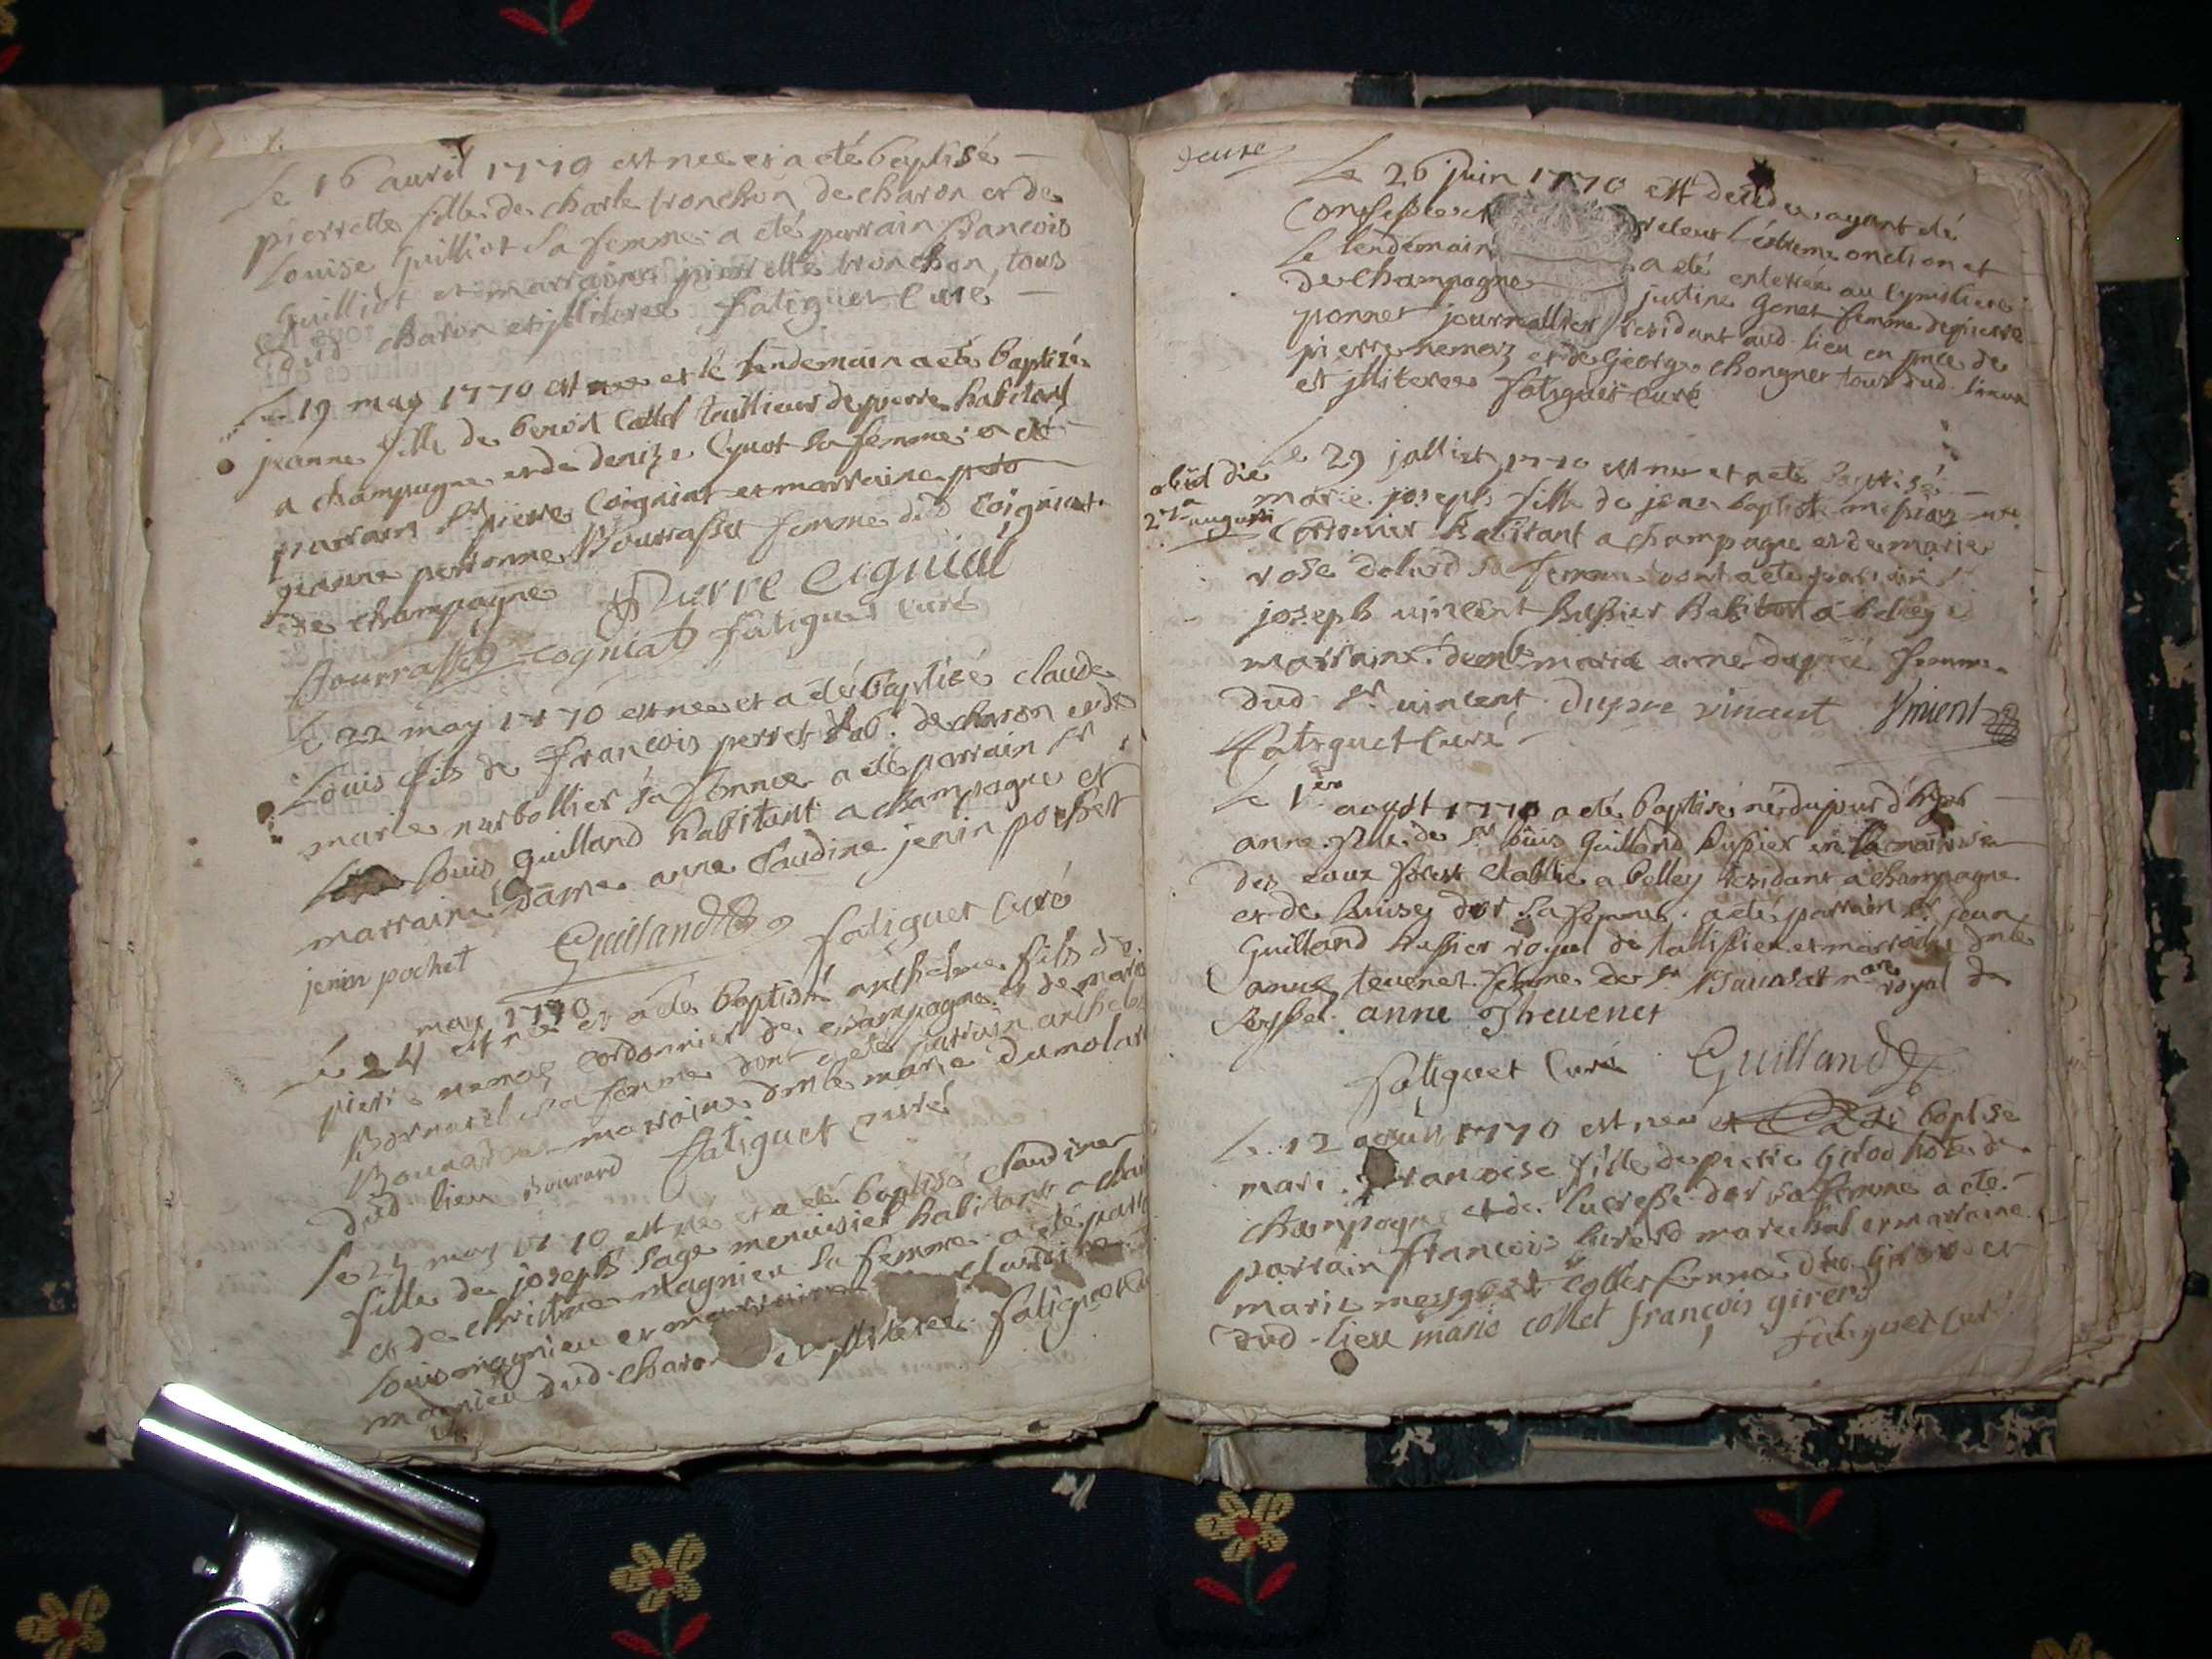 Le 16 auril 1770 est nee et a eté baptisé
pierrette fille de charle tronchon de charon et de
Louise Guilliot sa femme a eté parrain francois
Guilliot et marraine pierrette tronchon, tous
dud charon et jlliteree fatiguet Curé
Le 19 may 1770 est nee et le lendemain a eté baptizé
jeanne fille de benoit Collet tailleur de pierre habitant
a champagne et de denize Cyuot sa femme a eté
parrain Sr pierre Coigniat et marraine
jeanne perronne Bourrasset femme dud Coigniat
de champagne Pierre Cigniat
Bourrasset cogniat fatiguet Curé
Le 22 may 1770 est nee et a eté baptisé claude
Louis fils de francois perret hab. de charon et de
marie narbollier sa femme a eté parrain Sr
Louis Guilland habitant a champagne et
marraine Dame anne Claudine jenin pochet
jenin pochet Guilland fatiguet Curé
Le 24 may 1770 est né et a eté baptisé anthelme fils de
pierre nemoz Cordonnier de champagne et de marie
Bornarel sa femme dont a eté parrain
marraine dmlle marie dumolar
dud lieu Bourard fatiguet Curé
Le may 1770 est né et a eté baptisé claudine
fille de joseph Sage menuisier habitant a
et de christine magnieu sa femme a eté
Louis magnieu et marraine claudine
magnieu dud charon et jlliteree fatiguet
Le 26 juin 1770 est decedee ayant eté
Confessee et receut L'extreme onction et
le lendemain a eté enterrée au Cymitiere
de champagne justine Genet femme de pierre
ponnet journallier residant aud. lieu en pnce de
pierre nemoz et de George chongner tous dud. lieux
et jlliteree fatiguet Curé
obiit die
27a augusti
Le 29 jolliet 1770 est nee et a eté baptisé
marie joseph fille de jean baptiste
Cordonier habitant a champagne et de marie
rose sa femme dont a eté parrain Sr
joseph uincent hussier habitant a belley
marraine demlle marie anne dupré femme
dud Sr uincent dupre vincent Vincent
fatiguet Curé
Le 1er aoust 1770 a eté baptisé né du jour d'hyer
anne fille de Sr Louis Guilland hussier en la maitrise
des eaux forest etablie a belley residant a champagne
et de Louise dor sa femme a eté parrain Sr jean
Guilland hussier royal de tallissieu et marraine dmlle
anne teuenet femme de Sr nare royal de
Seyssel. anne Theuenet
fatiguet Curé Guilland
Le 12 aoust 1770 est nee et baptisé
mari francoise fille de pierre Girod hote de
champagne et de Lucresse dor sa femme a eté
parrain francois marechal et marraine
marie Collet femme dud Girerd et
dud. lieu marie collet françois girerd
fatiguet Curé